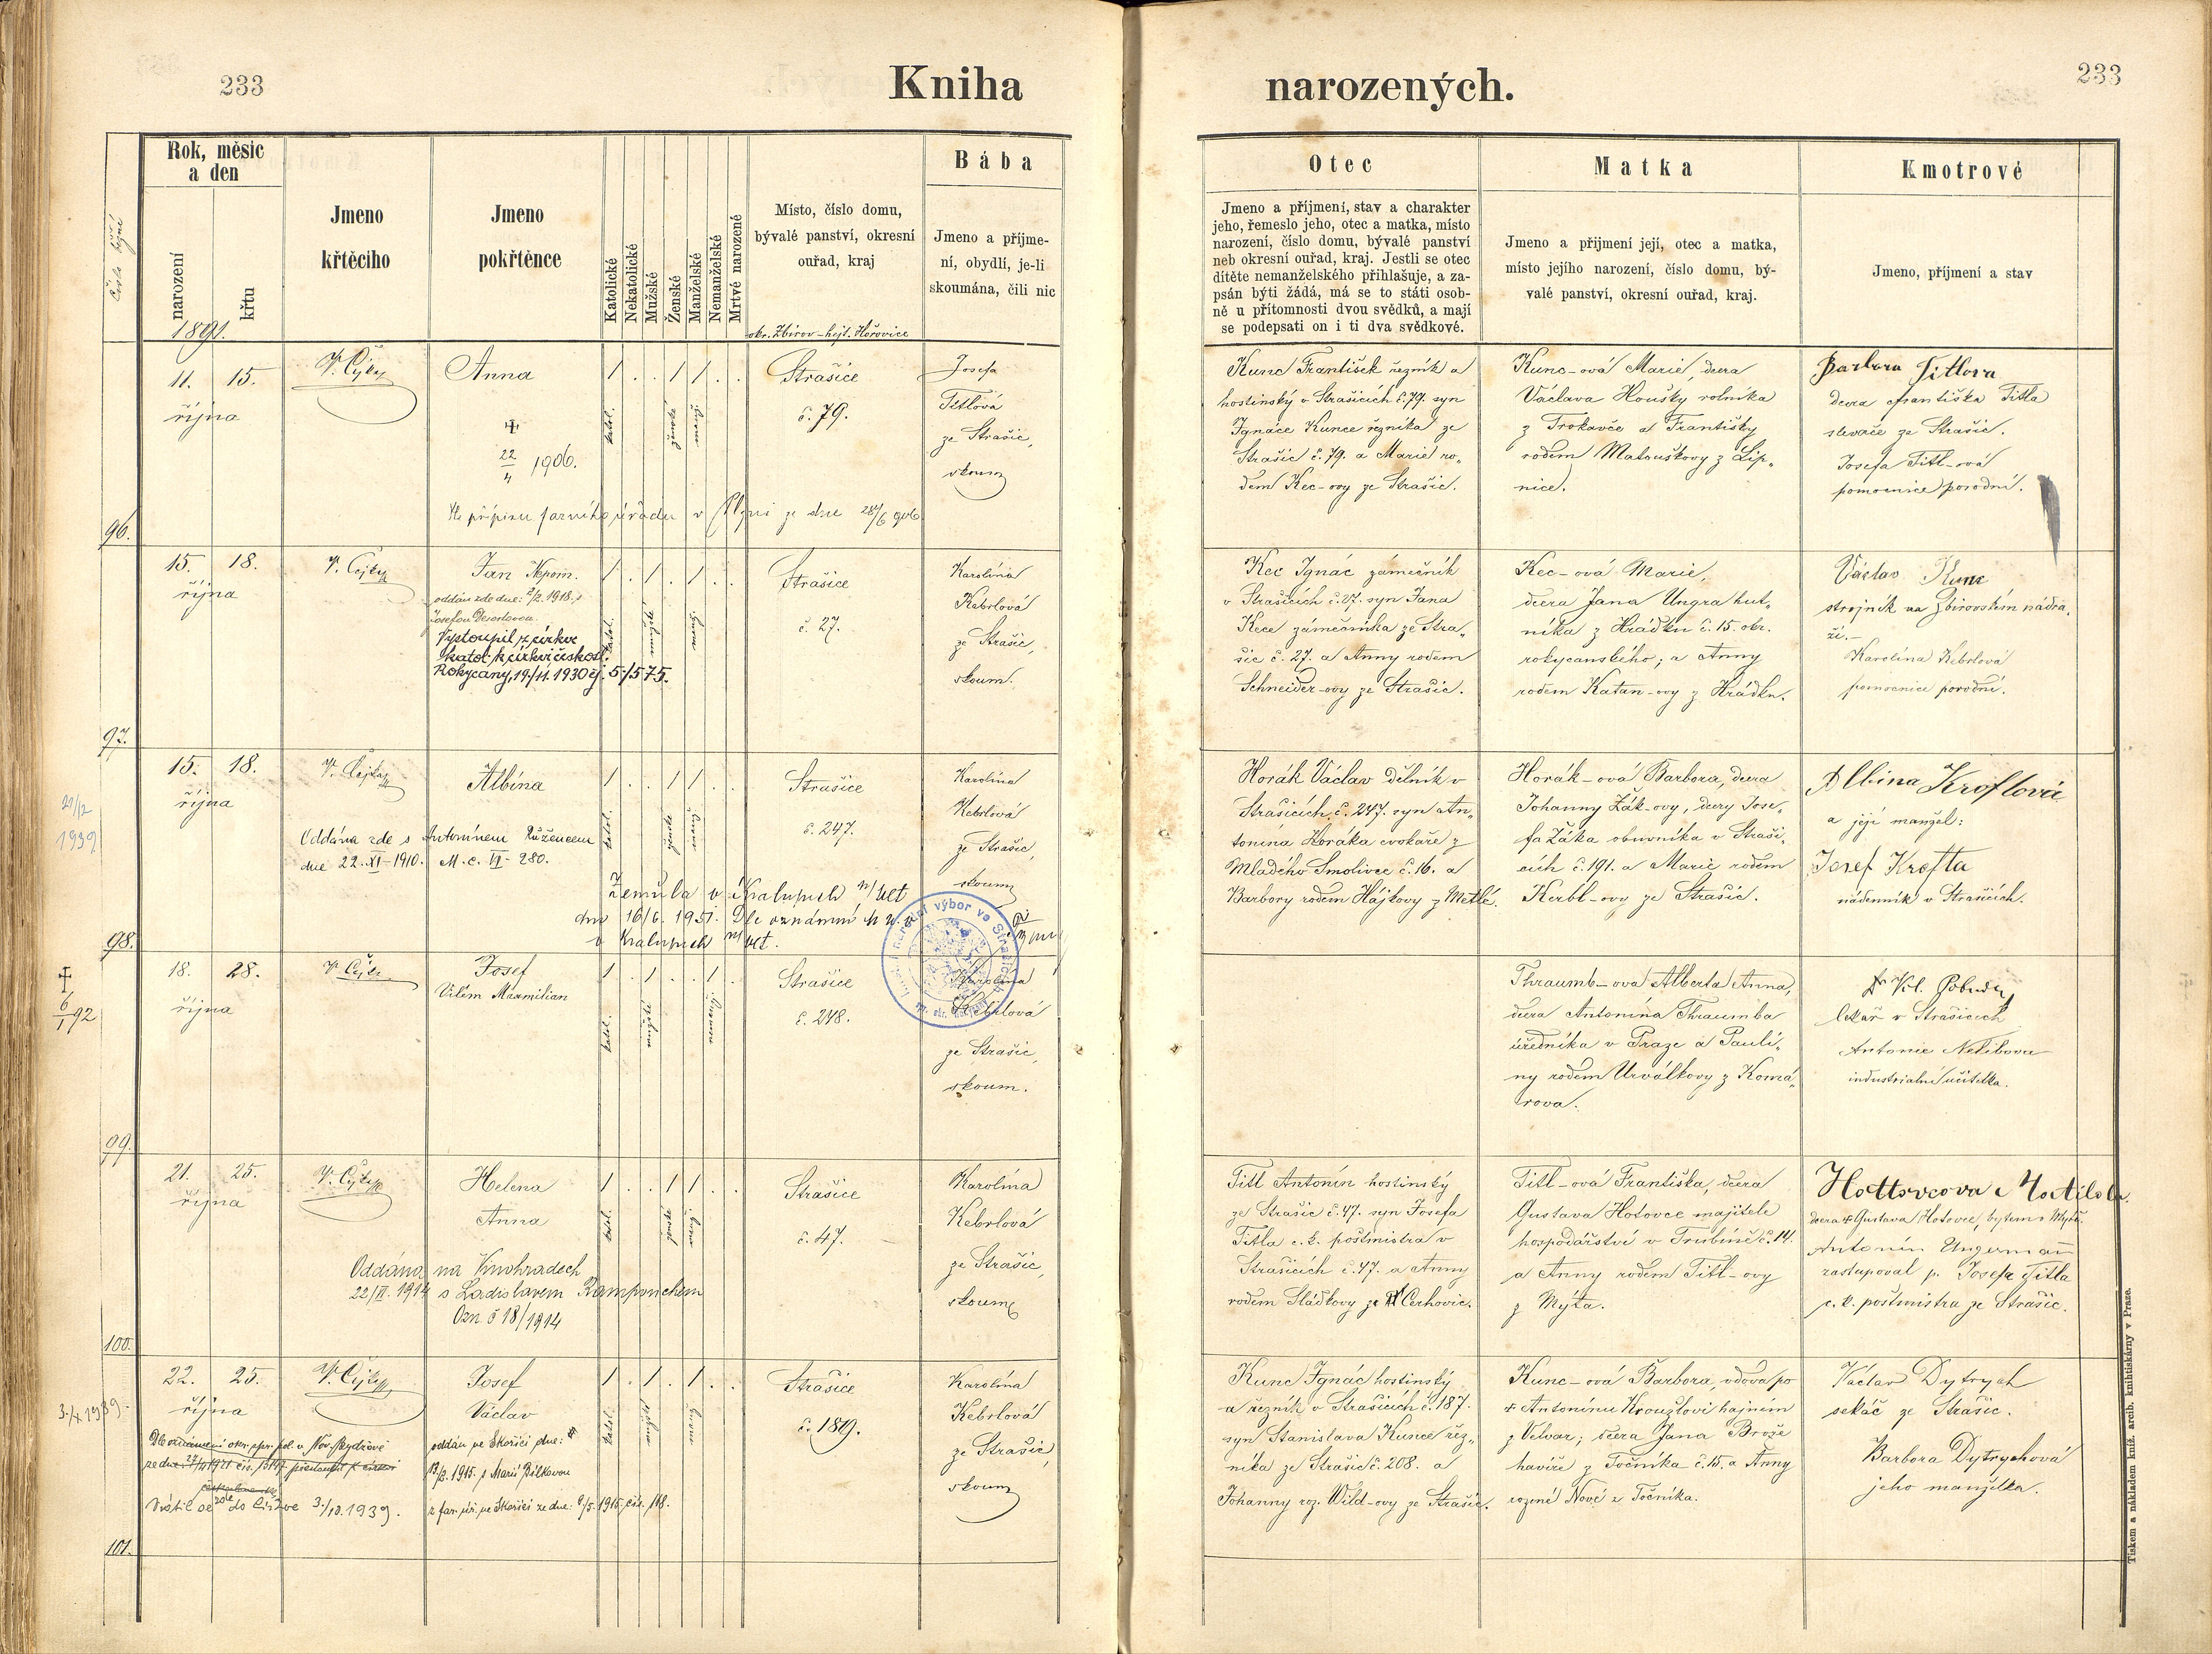 233
Kniha
narozených.
233
Číslo
Rok, měsic
a den
narození
křtu
Jmeno
křtěcího
Jmeno
pokřtěnce
Katolické
Nekatolické
Mužské
Ženské
Manželské
Nemanželské
Mrtvé narozené
Místo, číslo domu,
bývalé panství, okresní
ouřad, kraj
okr. Zbirov - hejt. Hořovice
Bába
Jmeno a příjme-
ní, obydlí, je-li
skoumána, čili nic
Otec
Jmeno a příjmení, stav a charakter
jeho, řemeslo jeho, otec a matka, místo
narození, číslo domu, bývalé panství
neb okresní ouřad, kraj. Jestli se otec
dítěte nemanželského přihlašuje, a za-
psán býti žádá, má se to státi osob-
ně u přítomnosti dvou svědků, a mají
se podepsati on i ti dva svědkové.
Matka
Jmeno a přijmení její, otec a matka,
místo jejího narození, číslo domu, bý-
valé panství, okresní ouřad, kraj.
Kmotrové
Jmeno, příjmení a stav
1891.
96.
11. 15.
října
Anna
†
22/4 1906.
Dle přípisu farního úřadu v Plzni ze dne 28/6 906
1 . . 1 1 . .
katol.
ženské
manž.
Strašice
č. 79.
Josefa
Titlová
ze Strašic,
skoum
Kunc František řezník a
hostinský v Strašicích č. 79. syn
Ignáce Kunce řezníka ze
Strašic č. 79. a Marie ro„
dem Kec-ovy ze Strašic.
Kunc-ová Marie, dcera
Václava Houšky rolníka
z Trokavče a Františky
rodem Matouškovy z Lip„
nice.
Barbora Titlova
dcera Františka Titla
slevače ze Strašic.
Josefa Titl-ová
pomocnice porodní.
97.
15. 18.
října
Jan Nepom.
oddán zde dne: 2/2. 1918. s
Josefou
Vystoupil z církve
katol. k církvi českosl.
Rokycany, 19./11. 1930 čj. 5/575.
1 . 1 . 1 . .
katol.
Strašice
č. 27.
Karolína
Kebrlová
ze Strašic,
skoum.
Kec Ignác zámečník
v Strašicích č. 27. syn Jana
Kece zámečníka ze Stra„
šic č. 27. a Anny rodem
Schneider-ovy ze Strašic.
Kec-ová Marie,
dcera Jana Ungra hut„
níka z Hrádku č. 15. okr.
rokycanského; a Anny
rodem Katan-ovy z Hrádku.
Václav Kunc
strojník na Zbirovském nádra„
ží.-
Karolína Kebrlová
pomocnice porodní.
98.
21/12
1939
15. 18.
října
Albína
Oddána zde s Antonínem Růžencem
dne 22. XI - 1910. M. c. VI - 280.
Zemřela v Kralupech n/Vlt
dne 16/6. 1951. Dle oznámení
v Kralupech n/Vlt.
1 . . 1 1 . .
katol.
ženské
Strašice
č. 247.
Karolína
Kebrlová
ze Strašic,
skoum
Horák Václav dělník v
Strašicích č. 247. syn An„
tonína Horáka cvokaře z
Mladého Smolivce č. 16. a
Barbory rodem Hájkovy z Metlé.
Horák-ová Barbora, dcera
Johanny Žák-ovy, dcery Jose„
fa Žáka obuvníka v Straši„
cích č. 191. a Marie rodem
Kerbl-ovy ze Strašic.
Albina Kroftová
a její manžel:
Josef Krofta
nádenník v Strašicích.
99.
†
6/1 92
18. 28.
října
Josef
Vilém Maxmilian
1 . 1 . . 1 .
katol.
Strašice
č. 248.
Karolína
Kebrlová
ze Strašic,
skoum.
Thraumb-ova Alberta Anna,
dcera Antonína Thraumba
úředníka v Praze a Paulí„
ny rodem Urválkovy z Komá„
rova.
lékař v Strašicích
Antonie Nelibova
industrialní učitelka.
100.
21. 25.
října
Helena
Anna
Oddána na Vinohradech
22/II. 1914 s Ladislavem
Ozn č 18/1914
1 . . 1 1 . .
katol.
ženské
Strašice
č. 47.
Karolína
Kebrlová
ze Strašic,
skoum
Titl Antonín hostinský
ze Strašic č. 47. syn Josefa
Titla c. k. poštmistra v
Strašicích č. 47. a Anny
rodem Sládkovy ze Cerhovic.
Titl-ová Františka, dcera
Gustava Hotovce majitele
hospodářství v Trubíně č. 14.
a Anny rodem Titl-ovy
z Mýta.
Hottovcova
dcera † Gustava Hotovce, bytem v Mýtě.
Antonín Ungermann
zastupoval p. Josefa Titla
c. k. poštmistra ze Strašic.
101.
3./X 1939.
22. 25.
října
Josef
Václav
oddán ve Skořici dne:
13/2. 1915. s Marií Bílkovou
z far. úř. ve Skořici ze dne: 6/5. 1915, čís. 118.
Dle oznámení okr. spr. pol. v Nov. Bydžově
Vrátil se zde do církve 3./10. 1939.
1 . 1 . 1 . .
katol.
Strašice
č. 189.
Karolína
Kebrlová
ze Strašic,
skoum
Kunc Ignác hostinský
a řezník v Strašicích č. 187.
syn Stanislava Kunce řez„
níka ze Strašic č. 208. a
Johanny roz. Wild-ovy ze Strašic.
Kunc-ová Barbora, vdova po
† Antonínu Kroužlovi hajném
z Velvar; dcera Jana Brože
havíře z Točníka č. 15. a Anny
rozené Nové z Točníka.
Václav Dytrych
sekáč ze Strašic.
Barbora Dytrychová
jeho manželka.
Tiskem a nákladem kníž. arcib. knihtiskárny v Praze.